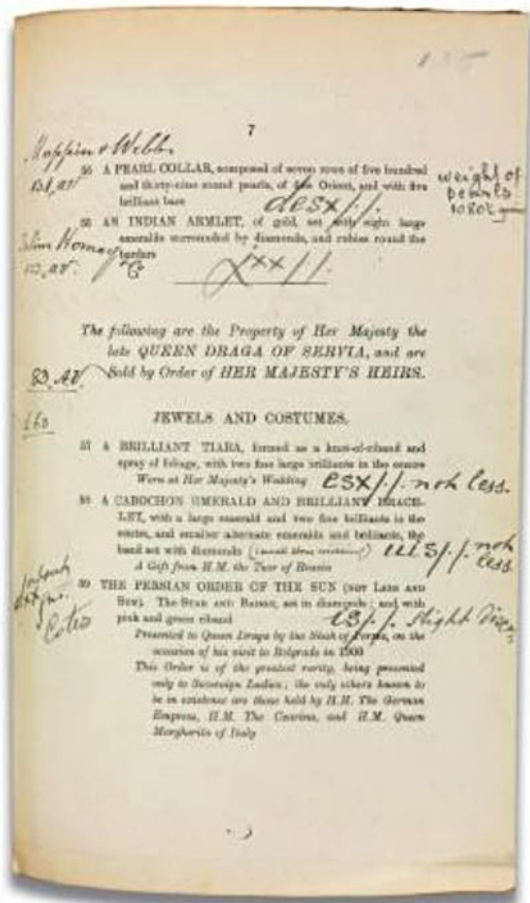 7
Mappin & Webb
55 A PEARL COLLAR, composed of seven rows of five hundred
and thirty-nine round pearls, of fine Orient, and with five
brilliant bars
desx/.
weight of
pearls
56 AN INDIAN ARMLET, of gold, set with eight large
emeralds surrounded by diamonds, and rubies round the
borders
The following are the Property of Her Majesty the
late QUEEN DRAGA OF SERVIA, and are
Sold by Order of HER MAJESTY'S HEIRS.
£60
JEWELS AND COSTUMES.
57 A BRILLIANT TIARA, formed as a knot-of-riband and
spray of foliage, with two fine large brilliants in the centre
Worn at Her Majesty's Wedding
esx/. not less.
58 A CABOCHON EMERALD AND BRILLIANT BRACE-
LET, with a large emerald and two fine brilliants in the
centre, and smaller alternate emeralds and brilliants, the
band set with diamonds
not
less
A Gift from H.M. the Tsar of Russia
59 THE PERSIAN ORDER OF THE SUN (NOT LION AND
SUN). The STAR AND BADGE, set in diamonds; and with
pink and green riband
slight
Presented to Queen Draga by the Shah of Persia, on the
occasion of his visit to Belgrade in 1900
This Order is of the greatest rarity, being presented
only to Sovereign Ladies; the only others known to
be in existence are those held by H.M. The German
Empress, H.M. The Czarina, and H.M. Queen
Margherita of Italy